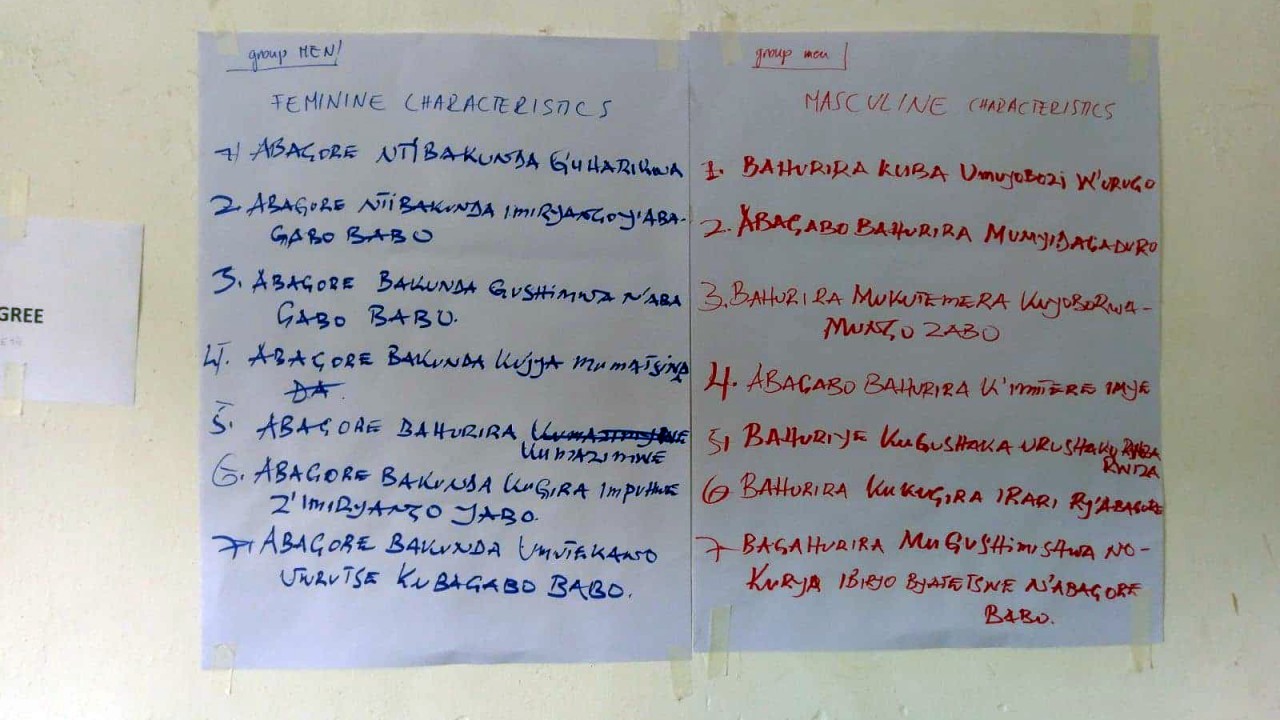 GREE
group MEN
FEMININE CHARACTERISTICS
1 ABAGORE NTIBAKUNDA GUHARIKWA
2 ABAGORE NTIBAKUNDA IMIRYANGO Y'ABA-
GABO BABO
3. ABAGORE BAKUNDA GUSHIMWA N'ABA
GABO BABO.
4. ABAGORE BAKUNDA KUJYA MUMATSINDA
DA
5. ABAGORE BAHURIRA
KUMAZIMWE
6. ABAGORE BAKUNDA KUGIRA IMPUHWE
Z'IMIRYANGO YABO.
7 ABAGORE BAKUNDA UMUTEKANO
UKUBAGABO BABO.
group men
MASCULINE CHARACTERISTICS
1. BAHURIRA KUBA UMUYOBOZI W'URUGO
2. ABAGABO BAHURIRA MUMYIDAGADURO
3. BAHURIRA MUKUTEMERA KUYOBORWA-
MUNGO ZABO
4. ABAGABO BAHURIRA K'IMITERE IMJE
5, BAHURIJE KUGUSHAKA URUSHAKO
RWIZA
6 BAHURIRA KUKUGIRA IRARI RY'ABAGORE
7 BAGAHURIRA MUGUSHIMISHWA NO-
KURYA IBIRYO BJATETSWE N'ABAGORE
BABO.